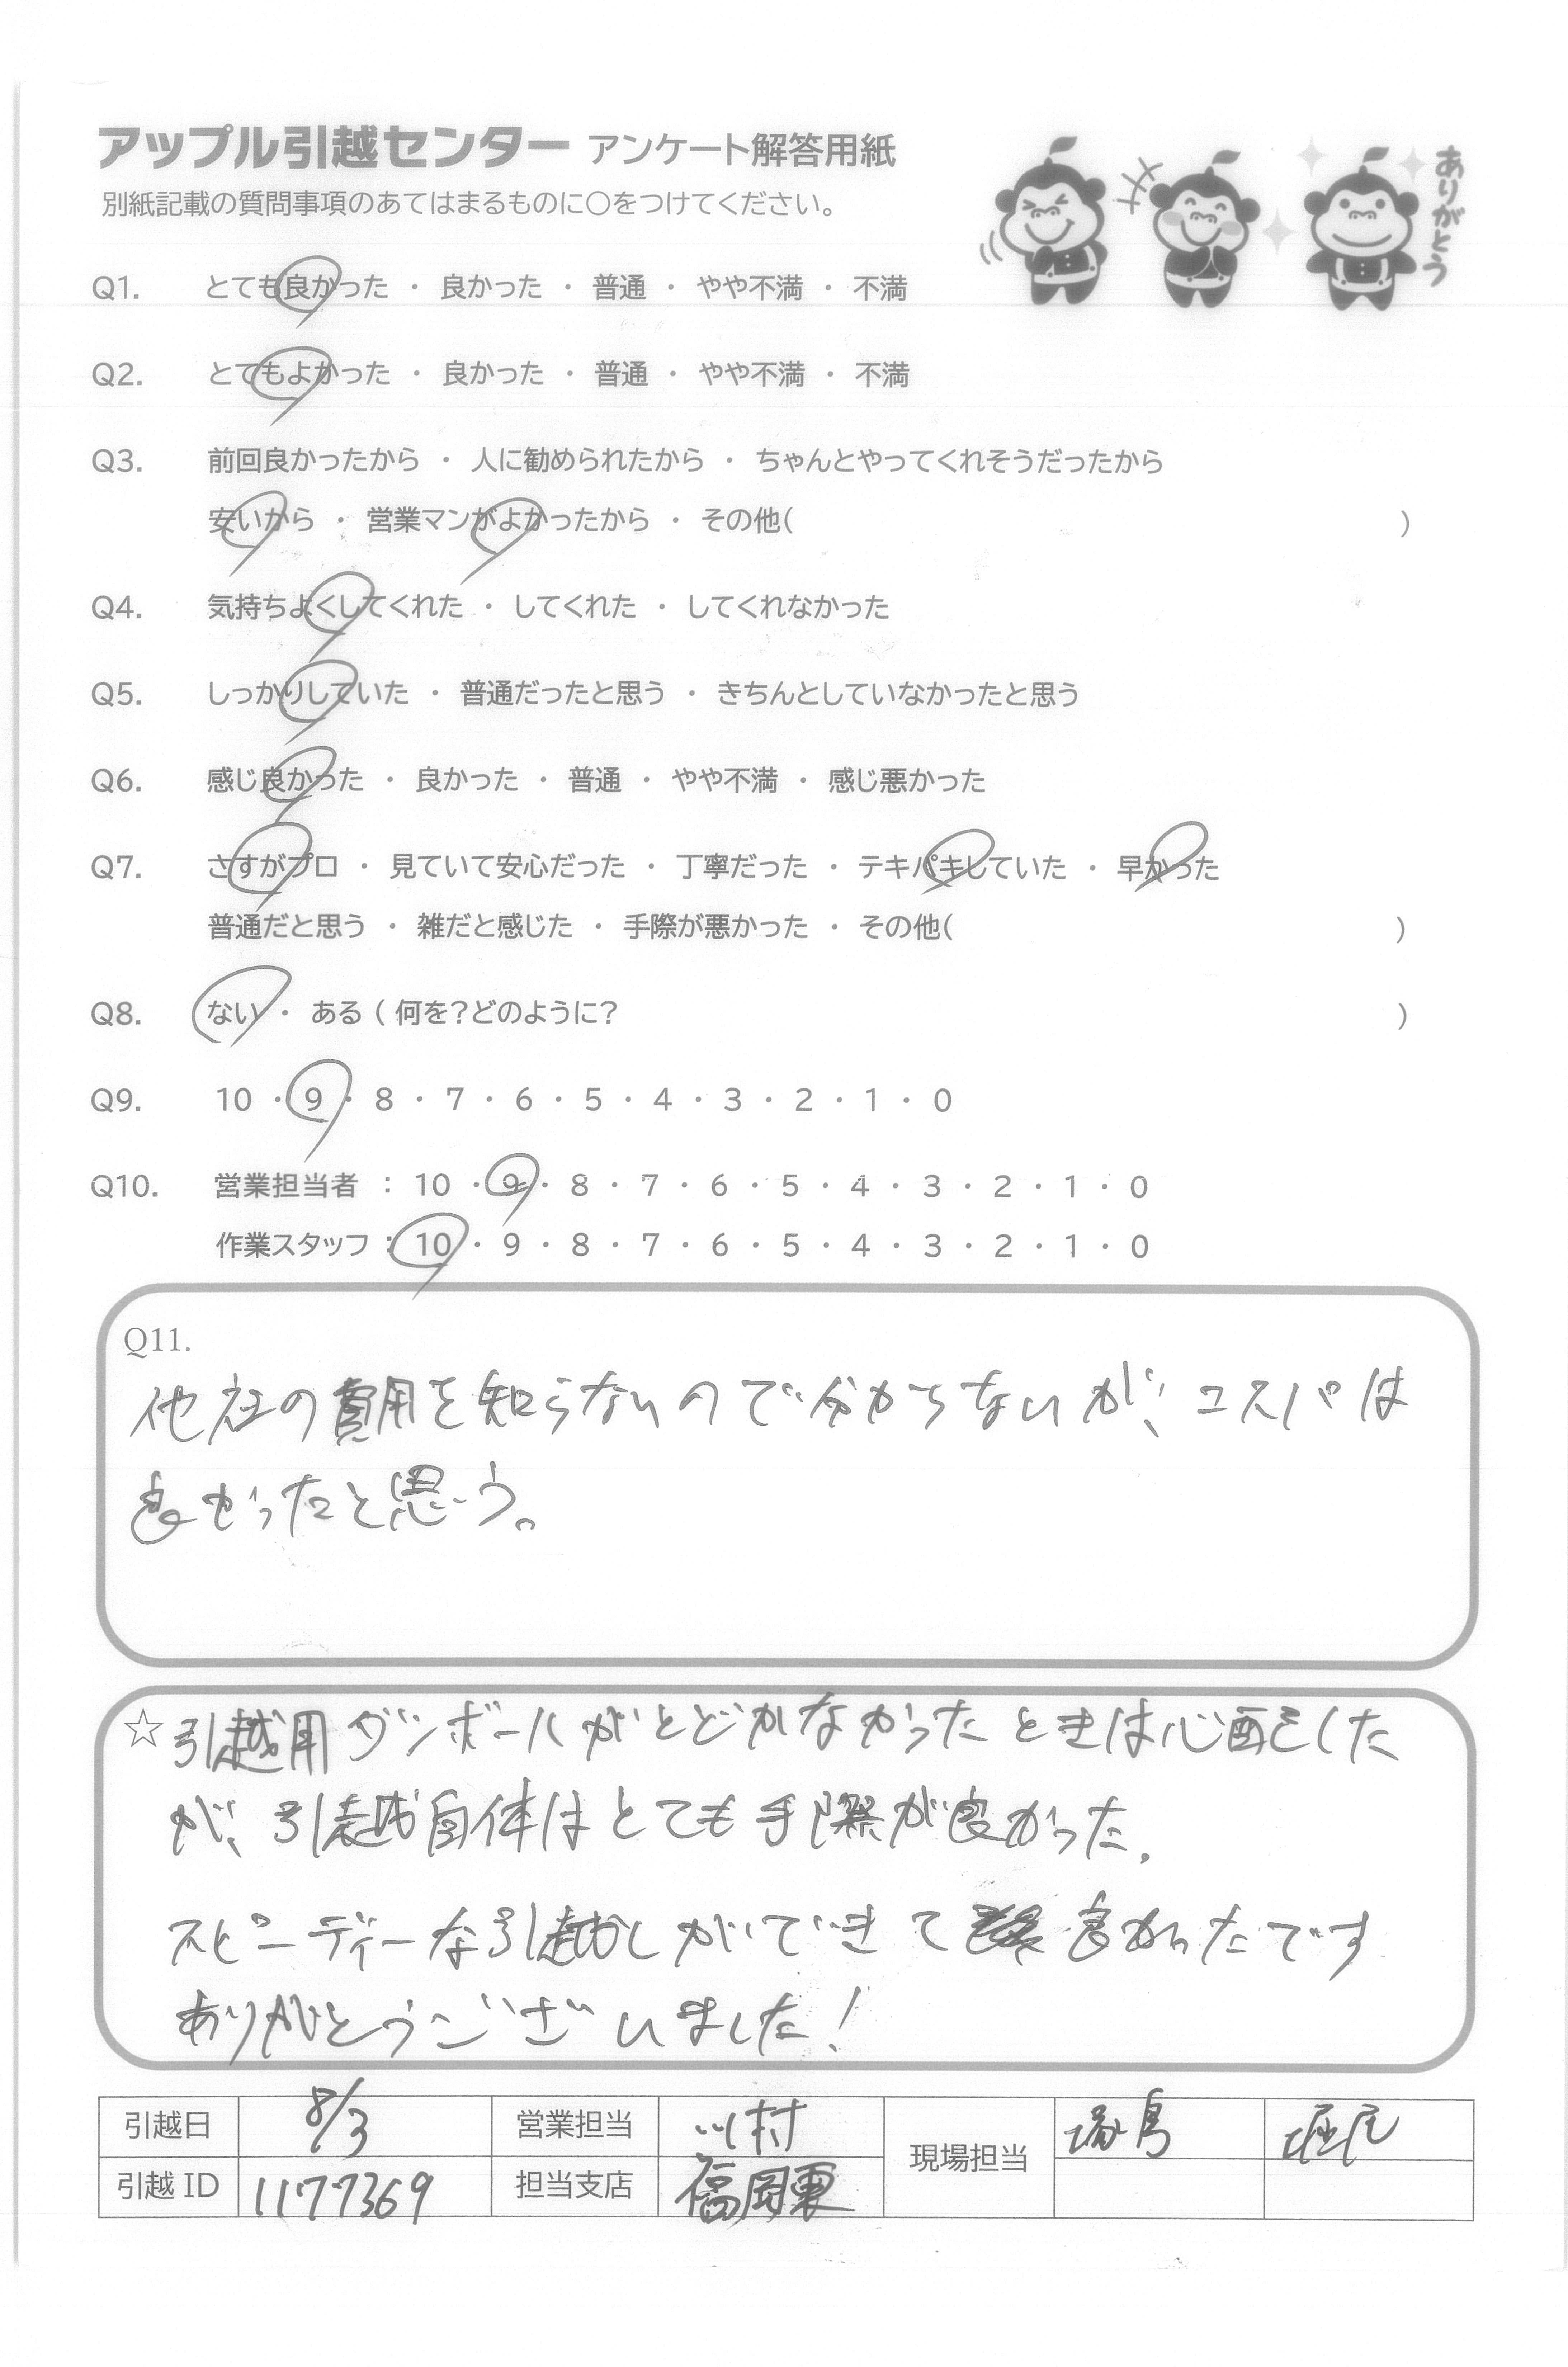 アップル引越センター アンケート解答用紙
別紙記載の質問事項のあてはまるものに○をつけてください。
ありがとう
Q1. とても良かった ・ 良かった ・ 普通 ・ やや不満 ・ 不満
Q2. とてもよかった ・ 良かった ・ 普通 ・ やや不満 ・ 不満
Q3. 前回良かったから ・ 人に勧められたから ・ ちゃんとやってくれそうだったから
安いから ・ 営業マンがよかったから ・ その他( )
Q4. 気持ちよくしてくれた ・ してくれた ・ してくれなかった
Q5. しっかりしていた ・ 普通だったと思う ・ きちんとしていなかったと思う
Q6. 感じ良かった ・ 良かった ・ 普通 ・ やや不満 ・ 感じ悪かった
Q7. さすがプロ ・ 見ていて安心だった ・ 丁寧だった ・ テキパキしていた ・ 早かった
普通だと思う ・ 雑だと感じた ・ 手際が悪かった ・ その他( )
Q8. ない ・ ある ( 何を?どのように? )
Q9. 10 ・ 9 ・ 8 ・ 7 ・ 6 ・ 5 ・ 4 ・ 3 ・ 2 ・ 1 ・ 0
Q10. 営業担当者 : 10 ・ 9 ・ 8 ・ 7 ・ 6 ・ 5 ・ 4 ・ 3 ・ 2 ・ 1 ・ 0
作業スタッフ : 10 ・ 9 ・ 8 ・ 7 ・ 6 ・ 5 ・ 4 ・ 3 ・ 2 ・ 1 ・ 0
Q11.
他社の費用を知らないので分からないが、コスパは
良かったと思う。
☆引越用ダンボールがとどかなかったときは心配した
が、引越自体はとても手際が良かった。
スピーディーな引越しができて良かったです
ありがとうございました!
引越日 8/3 営業担当 川村 現場担当 塚島 堀尾
引越 ID 1177369 担当支店 福岡東